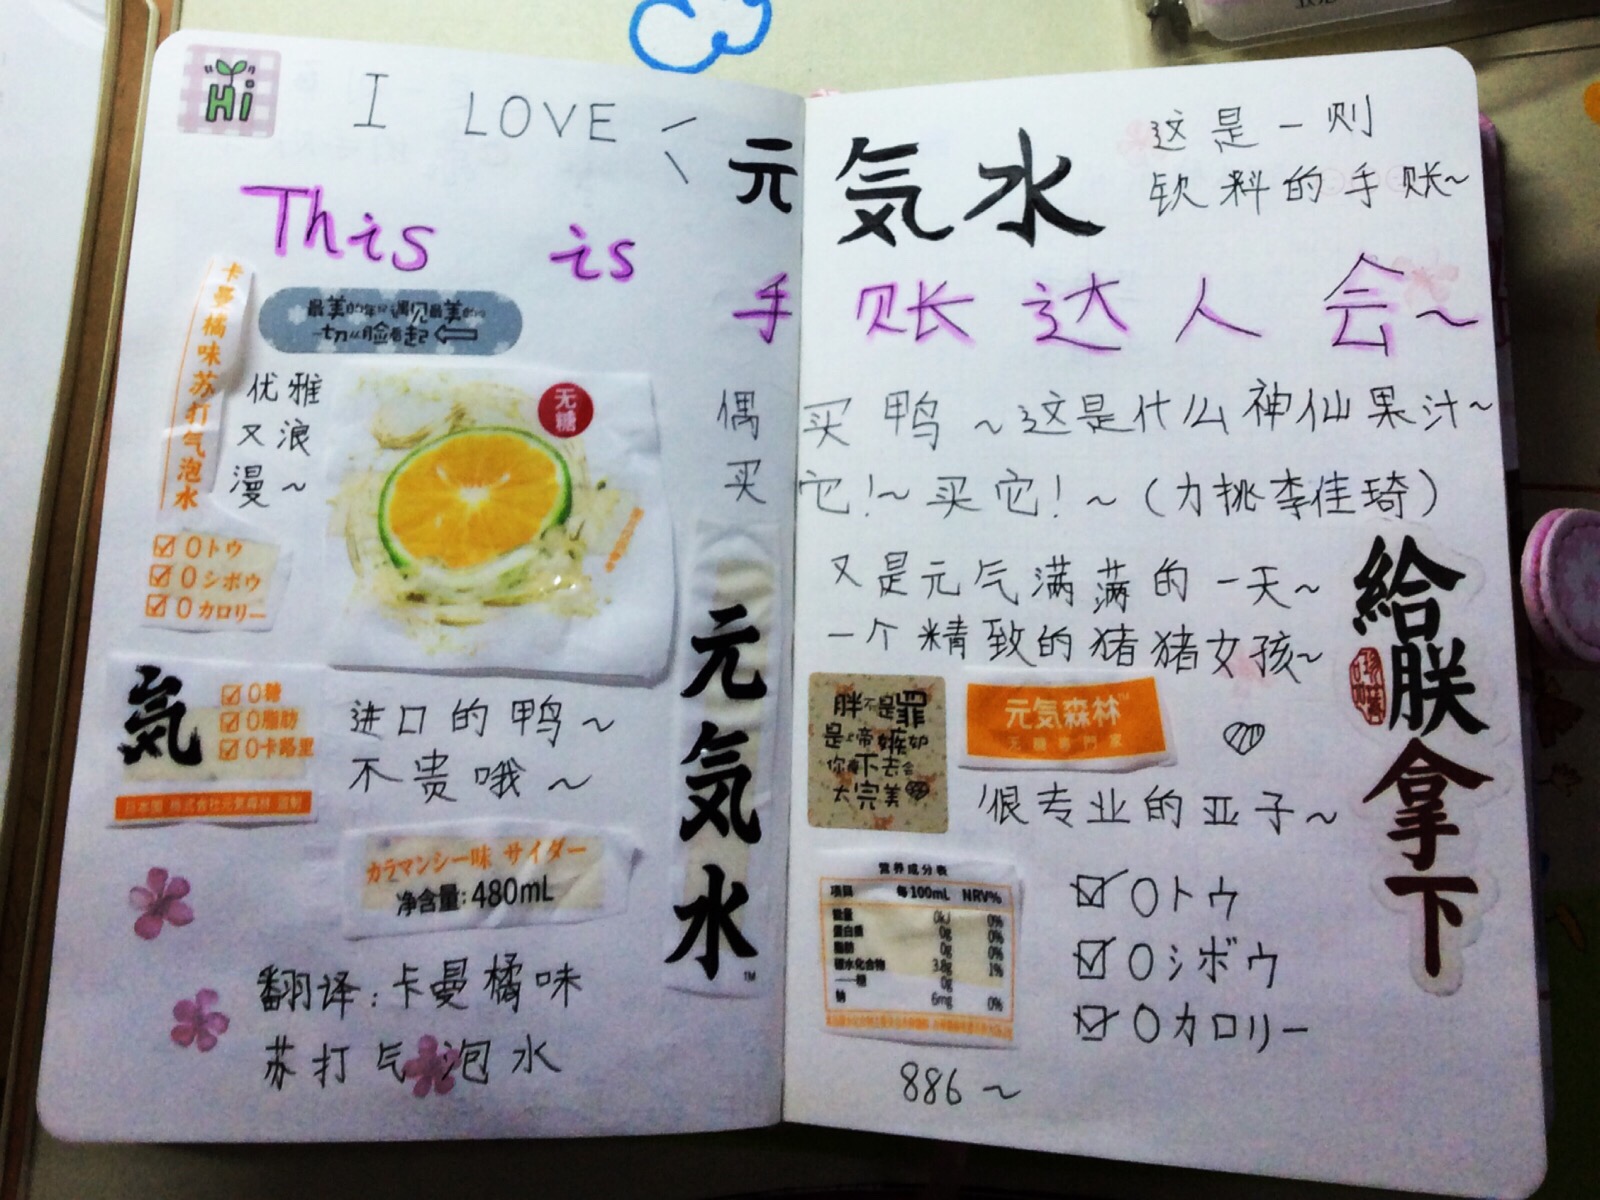 Hi
I LOVE
This is
卡曼橘味苏打气泡水
最美的年纪遇见最美的你
一切从脸看起
优雅
又浪
漫~
无糖
0トウ
0シボウ
0カロリー
気
0糖
0脂肪
0卡路里
进口的鸭~
不贵哦~
カラマンシー味 サイダー
净含量:480mL
翻译:卡曼橘味
苏打气泡水
元気水
TM
元気水
这是一则
饮料的手账~
手账达人会~
偶买鸭~这是什么神仙果汁~
买它!~买它!~(力挑李佳琦)
又是元气满满的一天~
一个精致的猪猪女孩~
胖不是罪
是上帝嫉妒
你
太完美
元気森林™
无糖專門家
很专业的亚子~
給朕拿下
营养成分表
项目 每100mL NRV%
能量 0kJ 0%
蛋白质 0g 0%
脂肪 0g 0%
碳水化合物 3.8g 1%
——糖 0g
钠 6mg 0%
0トウ
0シボウ
0カロリー
886~